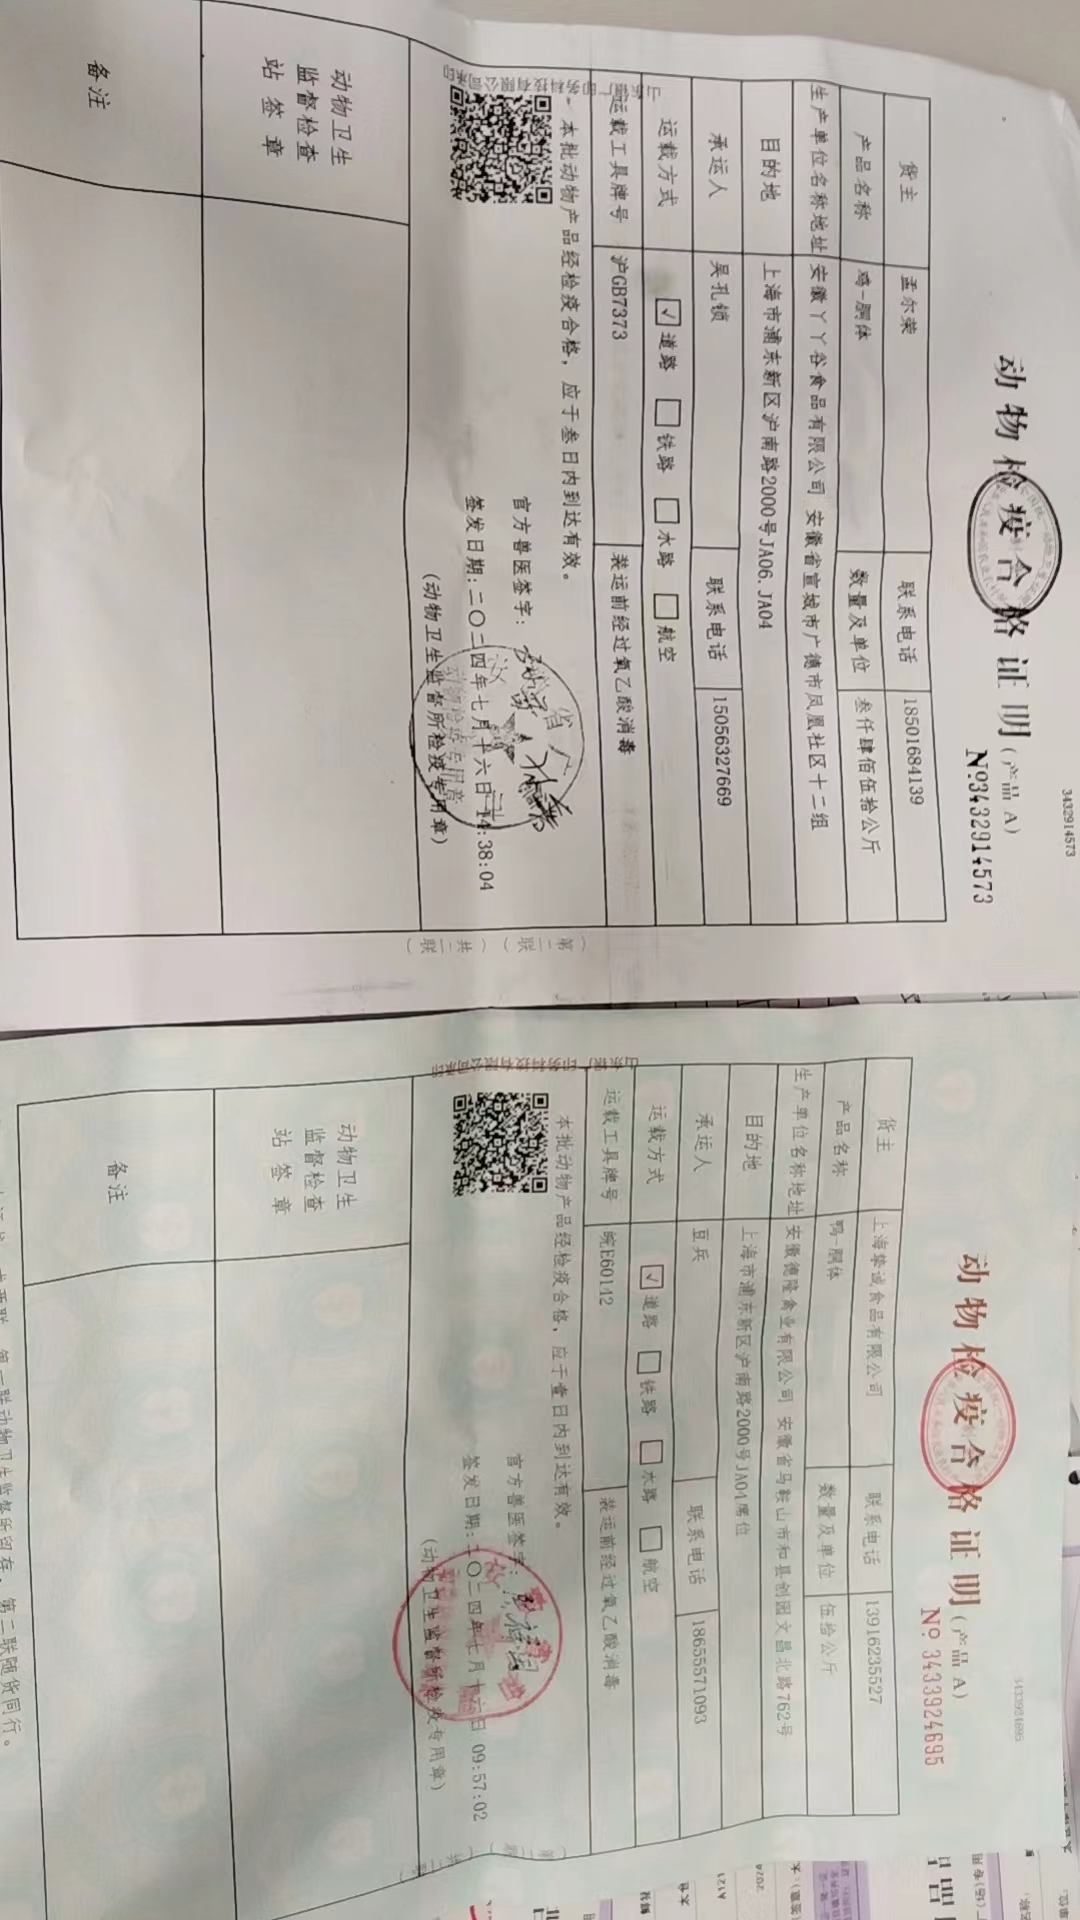 3432914573
动物检疫合格证明(产品 A)
№3432914573
货主 孟尔荣 联系电话 18501684139
产品名称 鸡-胴体 数量及单位 叁仟肆佰伍拾公斤
生产单位名称地址 安徽丫丫谷食品有限公司 安徽省宣城市广德市凤凰社区十二组
目的地 上海市浦东新区沪南路2000号JA06.JA04
承运人 吴孔锁 联系电话 15056327669
运载方式 ☑道路 □铁路 □水路 □航空
运载工具牌号 沪GB7373 装运前经过氧乙酸消毒
本批动物产品经检疫合格，应于叁日内到达有效。
官方兽医签字:
签发日期:二〇二四年七月十六日 14:38:04
(动物卫生监督所检疫专用章)
动物卫生
监督检查
站 签 章
备注
(第二联)
(共二联)
3433924695
动物检疫合格证明(产品 A)
№ 3433924695
货主 上海挚诚食品有限公司 联系电话 13916235527
产品名称 鸭-胴体 数量及单位 伍拾公斤
生产单位名称地址 安徽德隆禽业有限公司 安徽省马鞍山市和县创园文昌北路762号
目的地 上海市浦东新区沪南路2000号JA04席位
承运人 豆兵 联系电话 18655571093
运载方式 ☑道路 □铁路 □水路 □航空
运载工具牌号 皖E60142 装运前经过氧乙酸消毒
本批动物产品经检疫合格，应于壹日内到达有效。
官方兽医签字:
签发日期:二〇二四年七月十六日 09:57:02
(动物卫生监督所检疫专用章)
动物卫生
监督检查
站 签 章
备注
第一联动物卫生监督所留存，第二联随货同行。